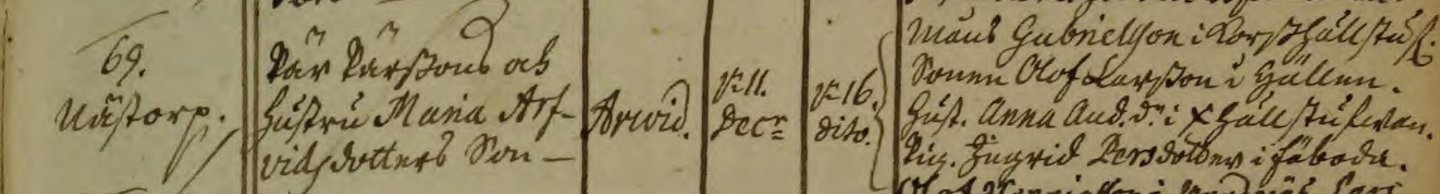 69.
Nästorp.
Pär Pärssons och
hustru Maria Arf-
vidsdotters Son —
Arwid.
d: 11.
Decr
d: 16.
dito.
Måns Gabrielsson i Korsshällstuf.
Sonen Olof Larsson i Hällen.
Hust. Anna And. dr i hällstufwan.
Pig. Ingrid Persdotter i fäboda.